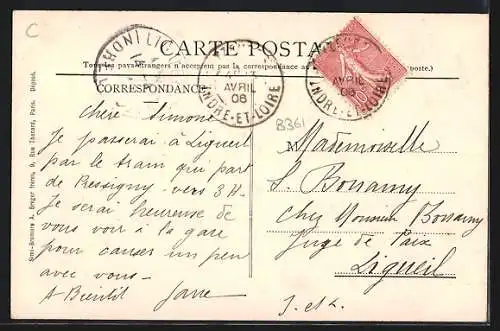 C
CARTE POSTALE
Tous les pays étrangers n'acceptent pas la correspondance
CORRESPONDANCE
AVRIL
06
INDRE-ET-LOIRE
AVRIL
06
INDRE-ET-LOIRE
B361
Chère Simone
Je passerai à Ligueil
par le train qui part
de Pressigny vers 3 H.
Je serai heureuse de
vous voir à la gare
pour causer un peu
avec vous-
A Bientôt
Mademoiselle
S. Bossamy
Chez Monsieur Bossamy
Juge de Paix
Ligueil
I. et L.